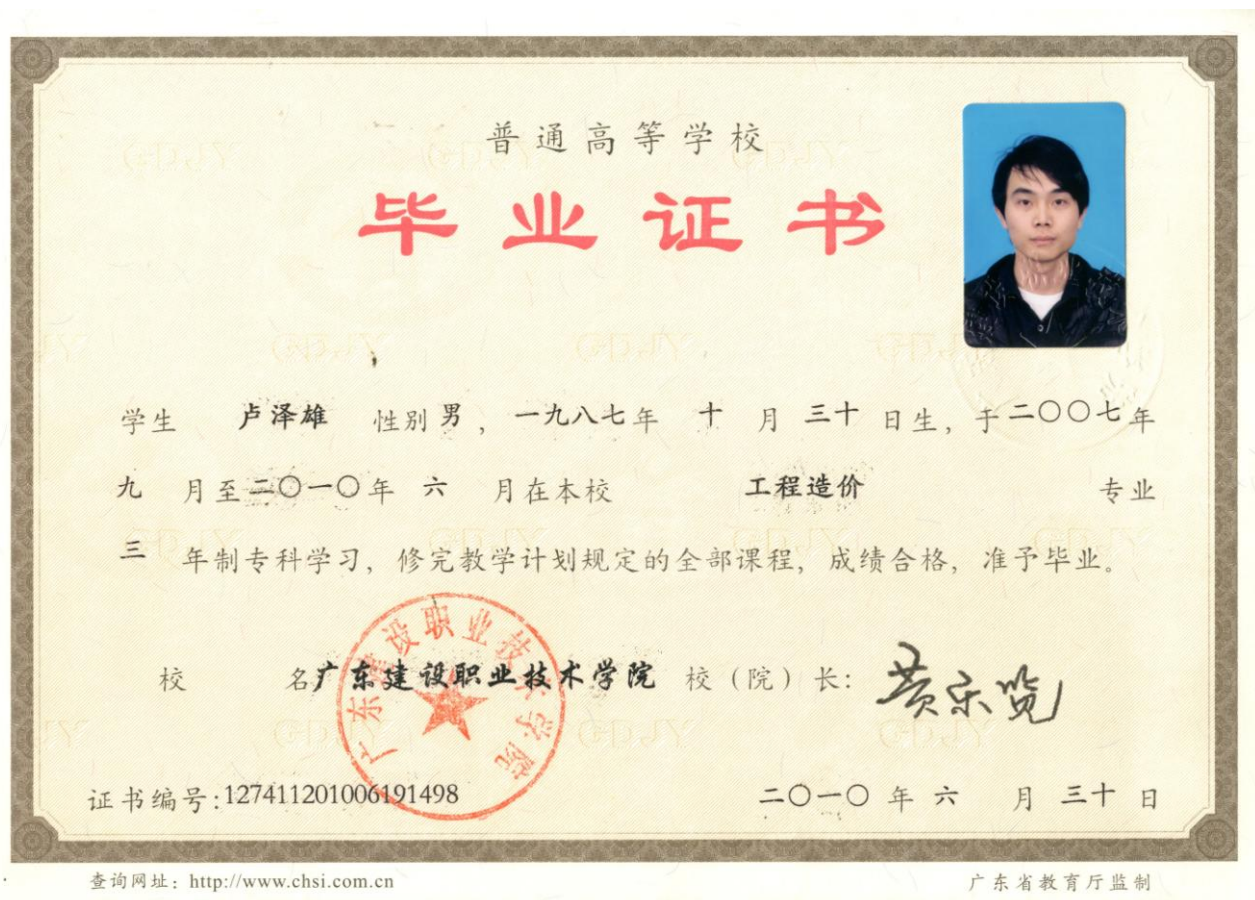 普通高等学校
毕业证书
学生 卢泽雄 性别 男，一九八七年 十 月 三十 日生，于二〇〇七年
九 月至二〇一〇年 六 月在本校 工程造价 专业
三 年制专科学习，修完教学计划规定的全部课程，成绩合格，准予毕业。
校 名广东建设职业技术学院 校（院）长：
广东建设职业技术学院
证书编号:127411201006191498 二〇一〇 年 六 月 三十 日
查询网址：http://www.chsi.com.cn 广东省教育厅监制